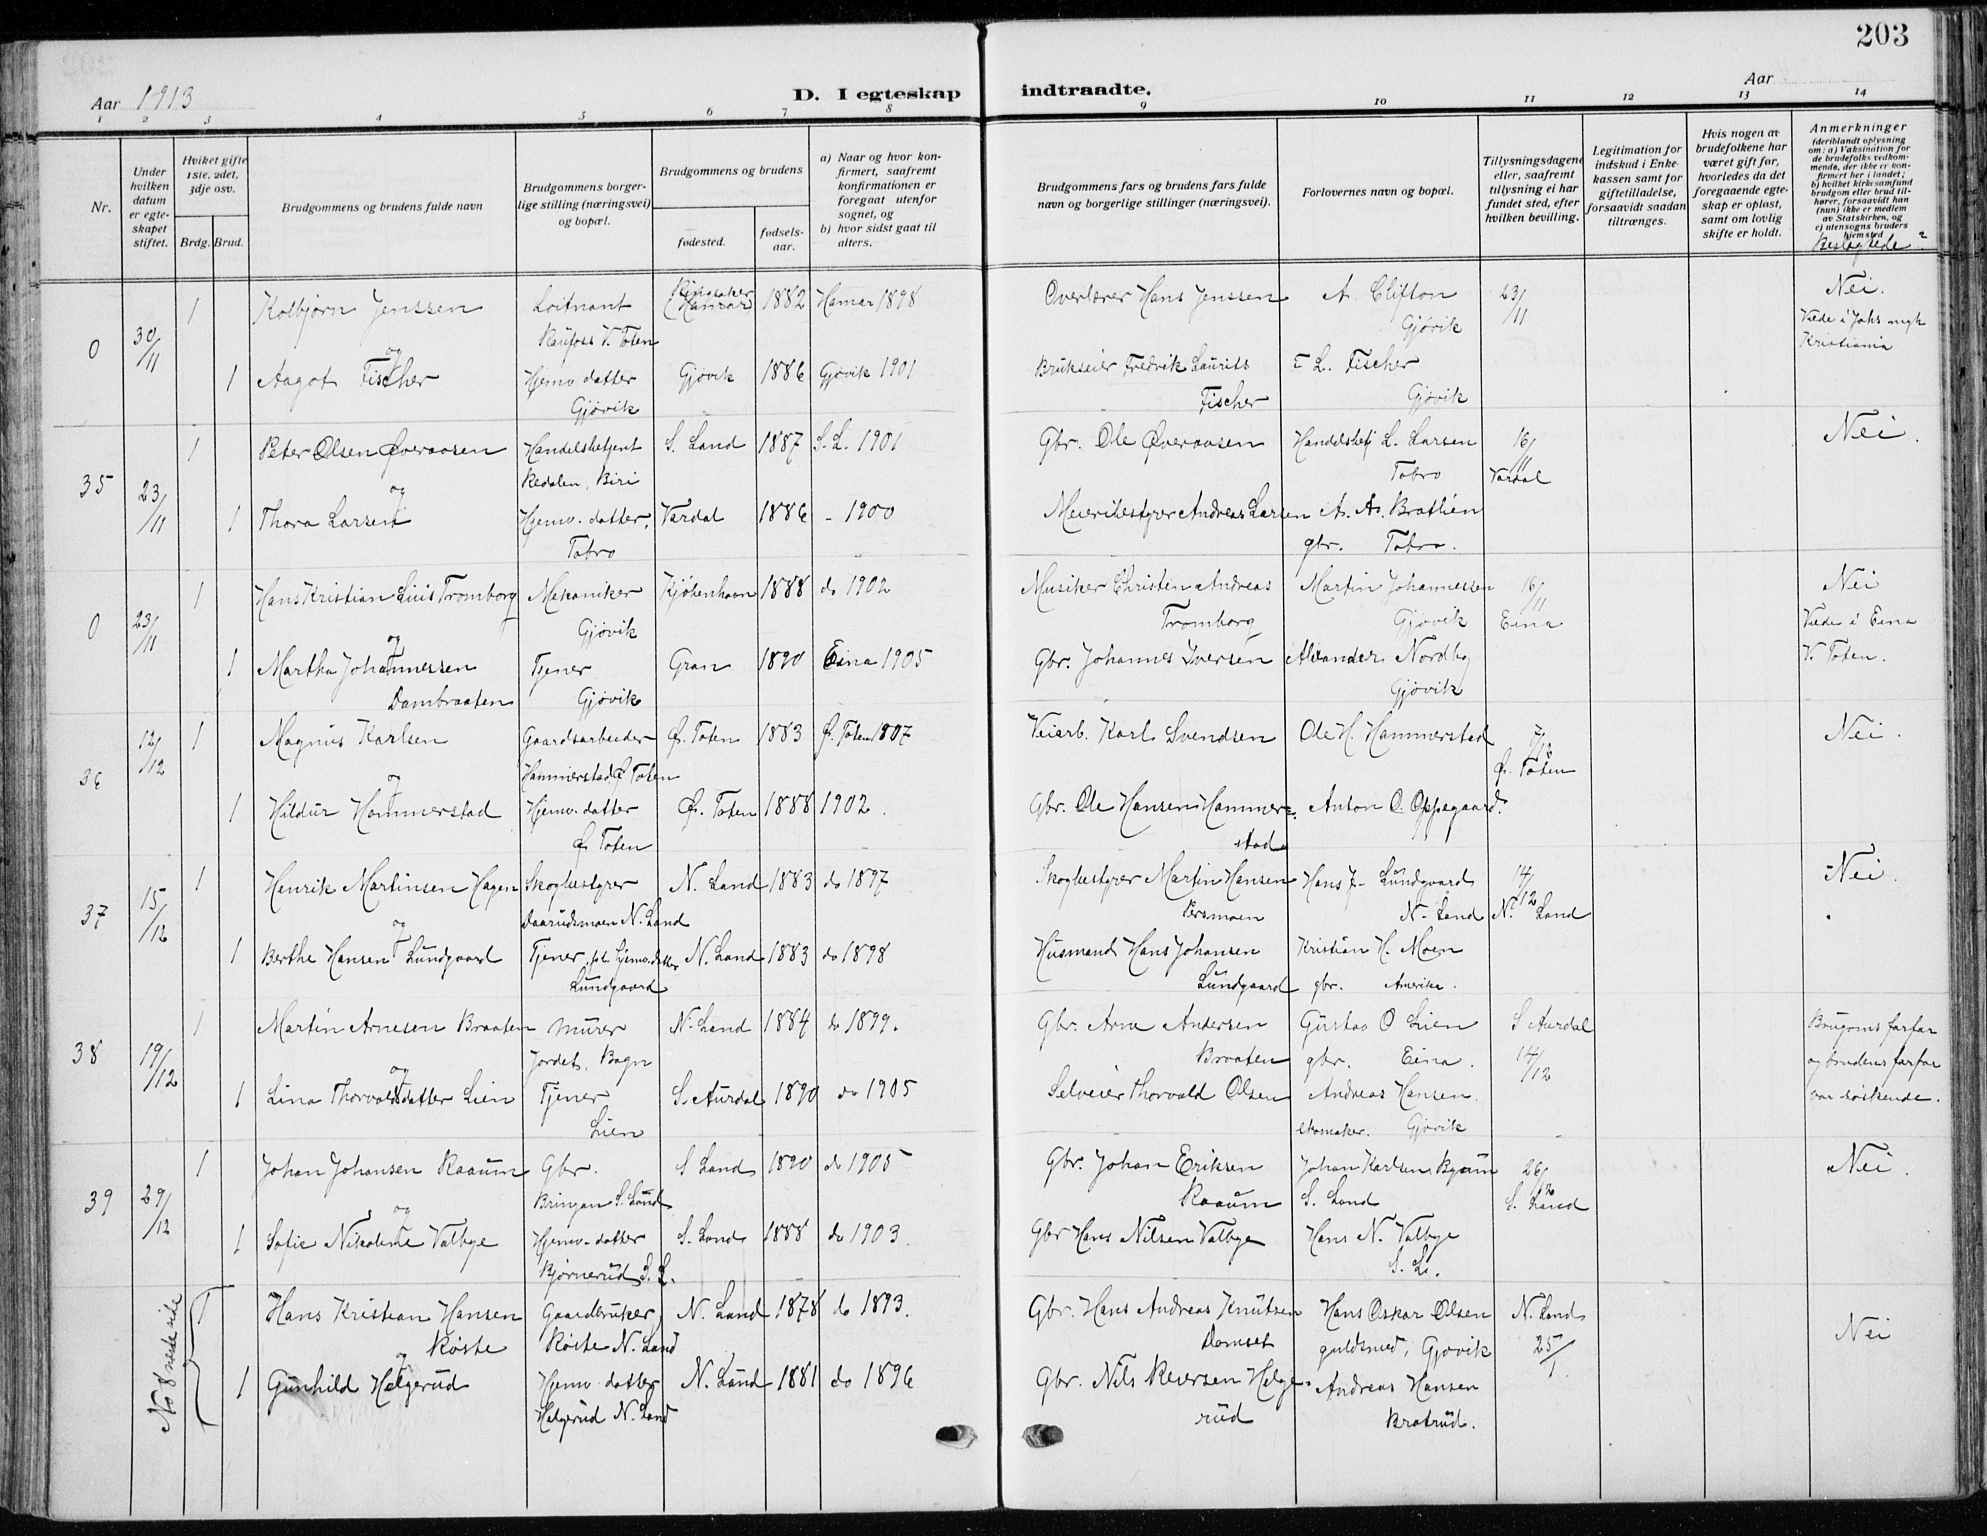 203
Aar 1913
D. I egteskap indtraadte.
Aar
1 2 3 4 5 6 7 8 9 10 11 12 13 14
Nr.
Under hvilken datum er egteskapet stiftet.
Hviket gifte 1ste, 2det, 3dje osv.
Brdg. Brud.
Brudgommens og brudens fulde navn
Brudgommens borgerlige stilling (næringsvei) og bopæl.
Brudgommens og brudens
fødested.
fødselsaar.
a) Naar og hvor konfirmert, saafremt konfirmationen er foregaat utenfor sognet, og
b) hvor sidst gaat til alters.
Brudgommens fars og brudens fars fulde navn og borgerlige stillinger (næringsvei).
Forlovernes navn og bopæl.
Tillysningsdagene eller, saafremt tillysning ei har fundet sted, efter hvilken bevilling.
Legitimation for indskud i Enkekassen samt for giftetilladelse, forsaavidt saadan tiltrænges.
Hvis nogen av brudefolkene har været gift før, hvorledes da det foregaaende egteskap er opløst, samt om lovlig skifte er holdt.
Anmerkninger (deriblandt oplysning om: a) Vaksination for de brudefolks vedkommende, der ikke er konfirmert her i landet; b) hvilket kirkesamfund brudgom eller brud tilhører, forsaavidt han (hun) ikke er medlem av Statskirken, og c) utensogns bruders hjemsted
Beslægtede?
0 30/11 1 Kolbjørn Jenssen Loitnant Ringsaker (Hamar) 1882 Hamar 1898 Overlærer Hans Jenssen A. Clifton 23/11 Nei.
og Raufoss V. Toten Gjøvik Viede i Johs megh
Kristiania
1 Aagot Fischer Hjemv. datter Gjøvik 1886 Gjøvik 1901 Brukseier Fredrik Laurits F. L. Fischer
Gjøvik Fischer Gjøvik
35 23/11 1 Peter Olsen Øveraasen Handelsbetjent S. Land 1887 S. L. 1901 Gbr. Ole Øveraasen Handelsbetj L. Larsen 16/11 Nei.
og Redalen, Biri Tobro Vardal
1 Thora Larsen Hjemv. datter, Vardal 1886 - 1900 Meieribestyrer Andreas Larsen A. As. Brathén
Tobro gbr. Tobro.
0 23/11 1 Hans Kristian Luis Tromborg Mekaniker Kjøbenhavn 1888 do 1902 Musiker Christen Andreas Martin Johannessen 16/11 Nei
og Gjøvik Tromborg Gjøvik Eina Viede i Eina
1 Martha Johannessen Tjener Gran 1890 Eina 1905 Gbr. Johannes Iversen Alexander Nordby V. Toten.
Dambraaten Gjøvik Gjøvik
36 12/12 1 Magnus Karlsen Gaardsarbeider Ø. Toten 1883 Ø. Toten 1897 Veiarb. Karl Svendsen Ole H. Hammerstad 7/12 Nei.
og Hammerstad Ø Toten Ø. Toten
1 Hildur Hammerstad Hjemv. datter Ø. Toten 1888 1902. Gbr. Ole Hansen Hammer= Anton O. Oppegaard.
Ø. Toten stad
37 15/12 1 Henrik Martinsen Hagen Skogbestyrer N. Land 1883 do 1897 Skogbestyrer Martin Hansen Hans J. Lundgaard 14/12 Nei.
og Daarudsmoen N. Land Persmoen N. Land N. Land
1 Berthe Hansen Lundgaard Tjener, fdt. hjemv. datter N. Land 1883 do 1898 Husmand Hans Johansen Kristian H. Moen
Lundgaard Lundgaard gbr. Amerika.
38 19/12 1 Martin Arnesen Braaten Murer N. Land 1884 do 1899. Gbr. Arne Andersen Gustav O Lien S Aurdal Brugoms farfar
og Jordet, Bagn Braaten gbr. Eina. 14/12 og brudens farfar
1 Lina Thorvaldsdatter Lien Tjener S. Aurdal 1890 do 1905 Selveier Thorvald Olsen Andreas Hansen. var søskende.
Lien skomaker. Gjøvik
39 29/12 1 Johan Johansen Raaum Gbr. S Land 1890 do 1905 Gbr. Johan Eriksen Johan Karlsen Byrum 26/12 Nei.
og Bringen S. Land Raaum S. Land S. Land
1 Sofie Nikoline Valbye Hjemv. datter S. Land 1888 do 1903. Gbr Hans Nilsen Valbye Hans N. Valbye
Bjørnerud S. L. S. L.
No 8 næste side 1 Hans Kristian Hansen Gaardbruker N. Land 1878 do 1893. Gbr. Hans Andreas Knutsen Hans Oskar Olsen N. Land Nei
og Røste Røste N. Land Domset guldsmed, Gjøvik 25/1
1 Gunhild Helgerud Hjemv datter N. Land 1881 do 1896 Gbr. Nils Reiersen Helge- Andreas Hansen
Helgerud N. Land rud Bratrud.